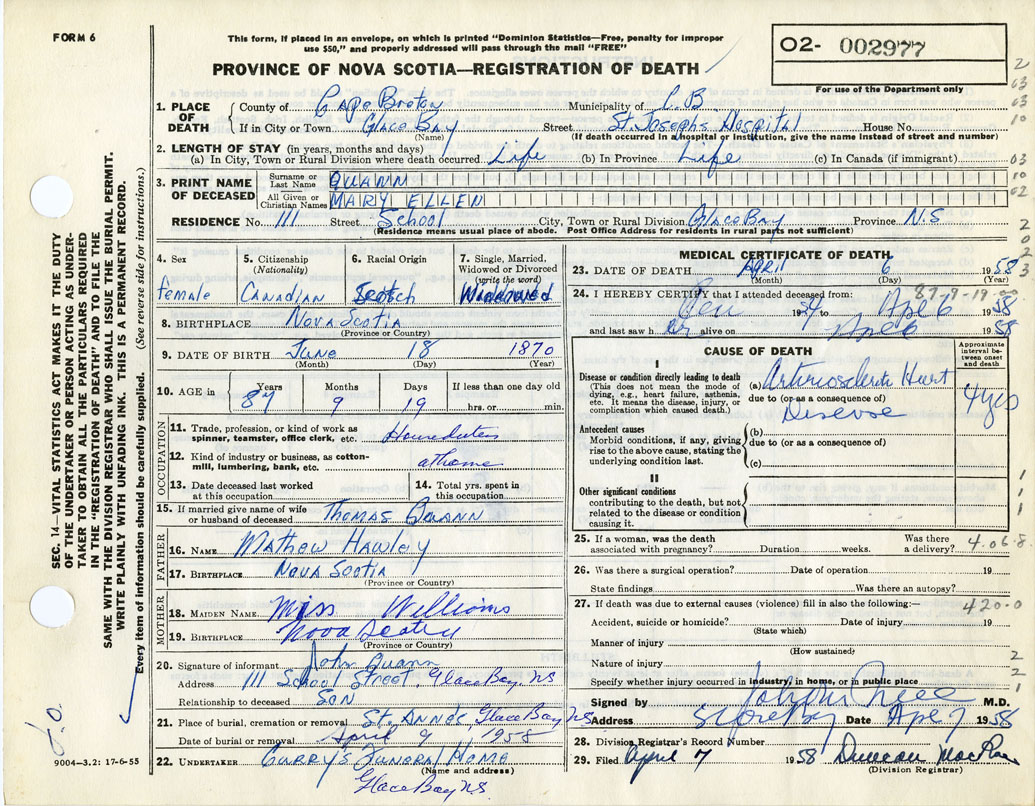 FORM 6
This form, if placed in an envelope, on which is printed "Dominion Statistics—Free, penalty for improper
use $50," and properly addressed will pass through the mail "FREE"
PROVINCE OF NOVA SCOTIA—REGISTRATION OF DEATH
02- 002977
For use of the Department only
1. PLACE OF DEATH
County of Cape Breton Municipality of C.B
If in City or Town Glace Bay Street St Josephs Hospital House No.
(Name) (If death occurred in a hospital or institution, give the name instead of street and number)
2. LENGTH OF STAY (in years, months and days)
(a) In City, Town or Rural Division where death occurred Life (b) In Province Life (c) In Canada (if immigrant)
3. PRINT NAME OF DECEASED
Surname or Last Name QUANN
All Given or Christian Names MARY ELLEN
RESIDENCE No. 111 Street School City, Town or Rural Division Glace Bay Province N.S
(Residence means usual place of abode. Post Office Address for residents in rural parts not sufficient)
4. Sex Female
5. Citizenship (Nationality) Canadian
6. Racial Origin Scotch
7. Single, Married, Widowed or Divorced (write the word) Widowed
8. BIRTHPLACE Nova Scotia
(Province or Country)
9. DATE OF BIRTH June 18 1870
(Month) (Day) (Year)
10. AGE in Years 87 Months 9 Days 19 If less than one day old hrs. or min.
OCCUPATION
11. Trade, profession, or kind of work as spinner, teamster, office clerk, etc. Houseduties
12. Kind of industry or business, as cotton-mill, lumbering, bank, etc. at home
13. Date deceased last worked at this occupation
14. Total yrs. spent in this occupation
15. If married give name of wife or husband of deceased Thomas Quann
FATHER
16. NAME Mathew Hawley
17. BIRTHPLACE Nova Scotia
(Province or Country)
MOTHER
18. MAIDEN NAME Miss Williams
19. BIRTHPLACE Nova Scotia
(Province or Country)
20. Signature of informant John Quann
Address 111 School Street, Glace Bay. NS
Relationship to deceased Son
21. Place of burial, cremation or removal St. Anne's, Glace Bay NS
Date of burial or removal April 9 1958
22. UNDERTAKER Curry's Funeral Home
(Name and address)
Glace Bay N.S.
9004—3.2: 17-6-55
MEDICAL CERTIFICATE OF DEATH
23. DATE OF DEATH April 6 1958
(Month) (Day) (Year)
87-9-19
24. I HEREBY CERTIFY that I attended deceased from:
19 to Apl 6 1958
and last saw her alive on Apl 6 1958
CAUSE OF DEATH
Approximate interval between onset and death
I
Disease or condition directly leading to death
(This does not mean the mode of dying, e.g., heart failure, asthenia, etc. It means the disease, injury, or complication which caused death.)
(a) Arteriosclerotic Heart
due to (or as a consequence of)
Disease
4 yrs
Antecedent causes
Morbid conditions, if any, giving rise to the above cause, stating the underlying condition last.
(b)
due to (or as a consequence of)
(c)
II
Other significant conditions
contributing to the death, but not related to the disease or condition causing it.
25. If a woman, was the death associated with pregnancy? Duration weeks. Was there a delivery?
4.06.8
26. Was there a surgical operation? Date of operation 19
State findings Was there an autopsy?
27. If death was due to external causes (violence) fill in also the following:—
420-0
Accident, suicide or homicide? Date of injury 19
(State which)
Manner of injury
(How sustained)
Nature of injury
Specify whether injury occurred in industry, in home, or in public place
Signed by M.D.
Address Date Apl 7 1958
28. Division Registrar's Record Number
29. Filed April 7 1958 Duncan MacRae
(Division Registrar)
SEC. 14—VITAL STATISTICS ACT MAKES IT THE DUTY
OF THE UNDERTAKER OR PERSON ACTING AS UNDER-
TAKER TO OBTAIN ALL THE PARTICULARS REQUIRED
IN THE "REGISTRATION OF DEATH" AND TO FILE THE
SAME WITH THE DIVISION REGISTRAR WHO SHALL ISSUE THE BURIAL PERMIT.
WRITE PLAINLY WITH UNFADING INK. THIS IS A PERMANENT RECORD.
Every item of information should be carefully supplied. (See reverse side for instructions.)
2
03
03
10
03
10
02
2
0
2
3
1
1
1
2
2
1